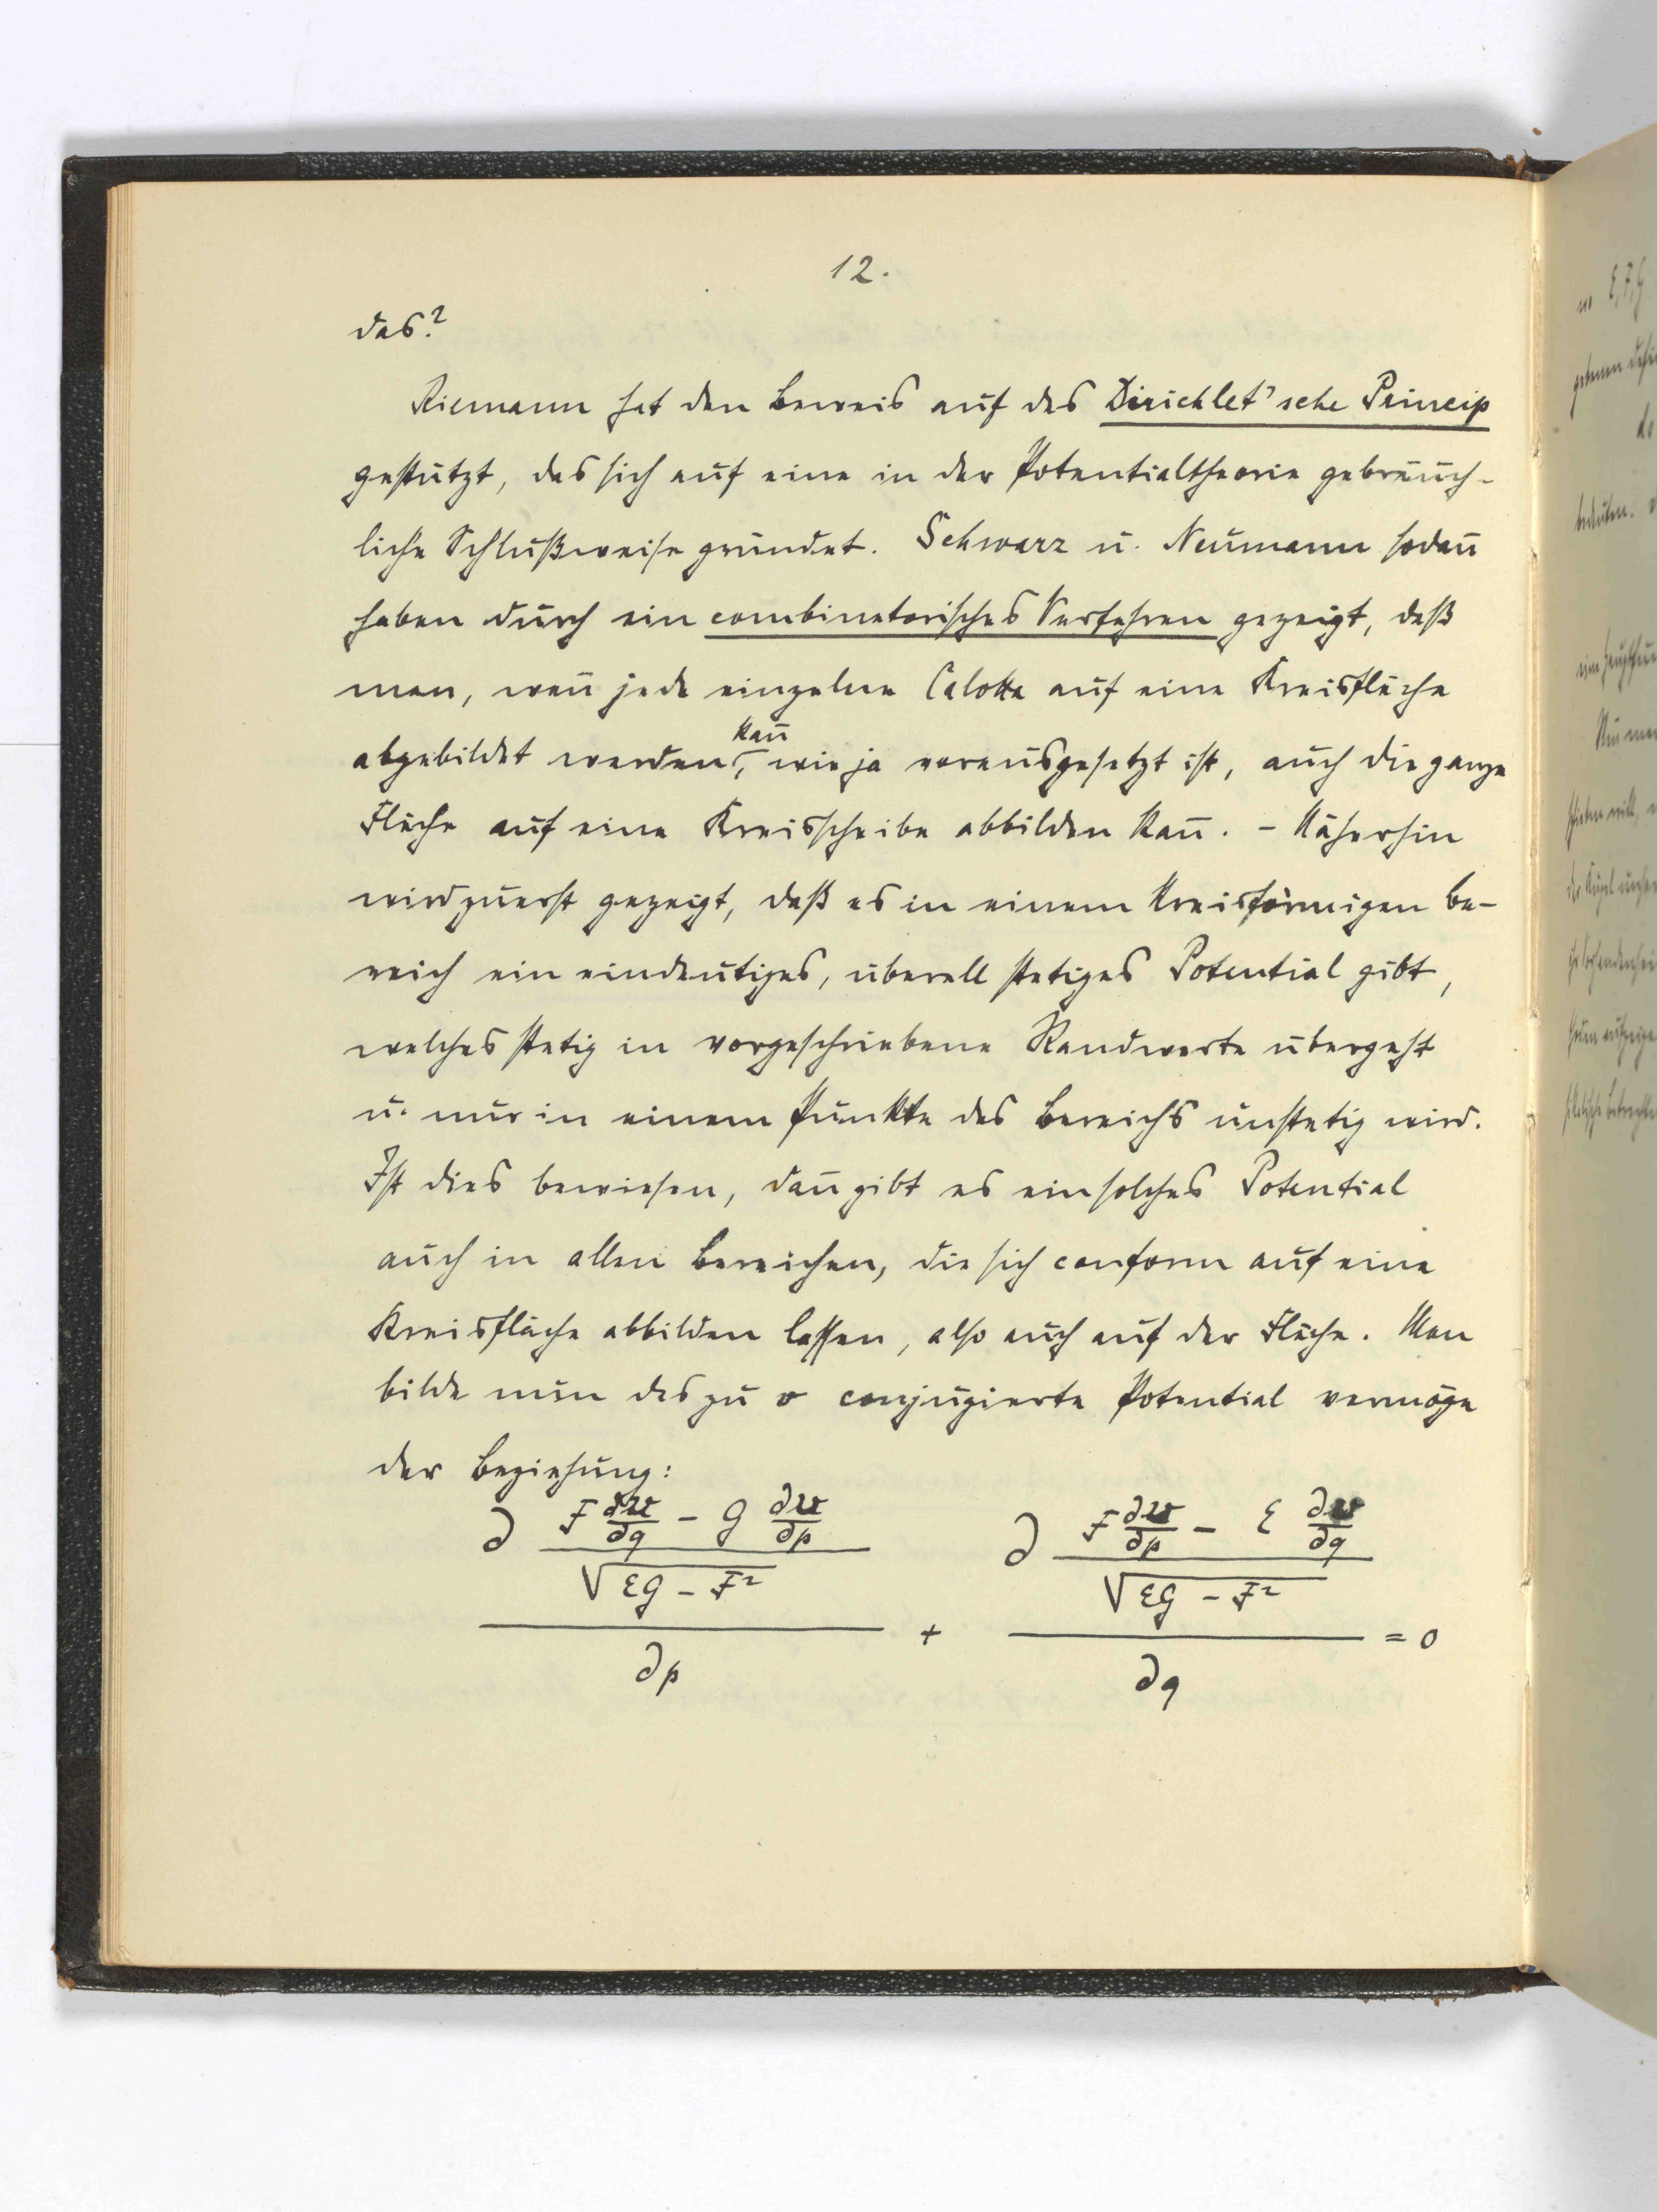 12.
das?
Riemann hat den Beweis auf das Dirichlet'sche Princip
gestützt, das sich auf eine in der Potentialtheorie gebräuch-
liche Schlußweise gründet. Schwarz u. Neumann sodan̅
haben durch ein combinatorisches Verfahren gezeigt, daß
man, wen̅ jede einzelne Calotte auf eine Kreisfläche
abgebildet werden kan̅, wie ja vorausgesetzt ist, auch die ganze
Fläche auf eine Kreisscheibe abbilden kan̅. - Näherhin
wird zuerst gezeigt, daß es in einem kreisförmigen Be-
reich ein eindeutiges, überall stetiges Potential gibt,
welches stetig in vorgeschriebene Randwerte übergeht
u. nur in einem Punkte des Bereichs unstetig wird.
Ist dies bewiesen, dan̅ gibt es ein solches Potential
auch in allen Bereichen, die sich conform auf eine
Kreisfläche abbilden lassen, also auch auf der Fläche. Man
bilde nun das zu v conjugierte Potential vermöge
der Beziehung:
∂ (F ∂v/∂q - G ∂v/∂p)/√(EG - F²) / ∂p + ∂ (F ∂v/∂p - E ∂v/∂q)/√(EG - F²) / ∂q = 0